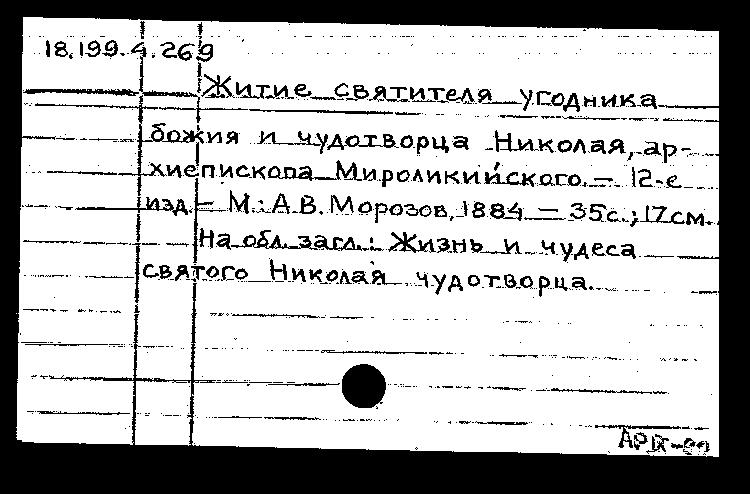 18.199.4.269
Житие святителя угодника
божия и чудотворца Николая, ар-
хиепископа Мироликийского. — 12-е
изд. — М.: А.В. Морозов, 1884 — 35с.; 17см.
На обл. загл.: Жизнь и чудеса
святого Николая чудотворца.
АР IX-